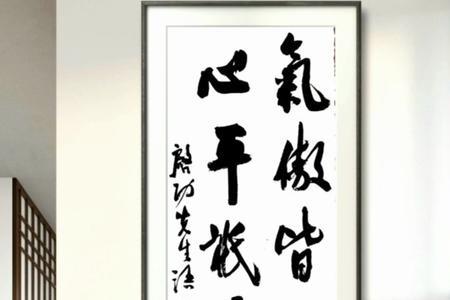 氣傲皆
心平祇
啟功先生語